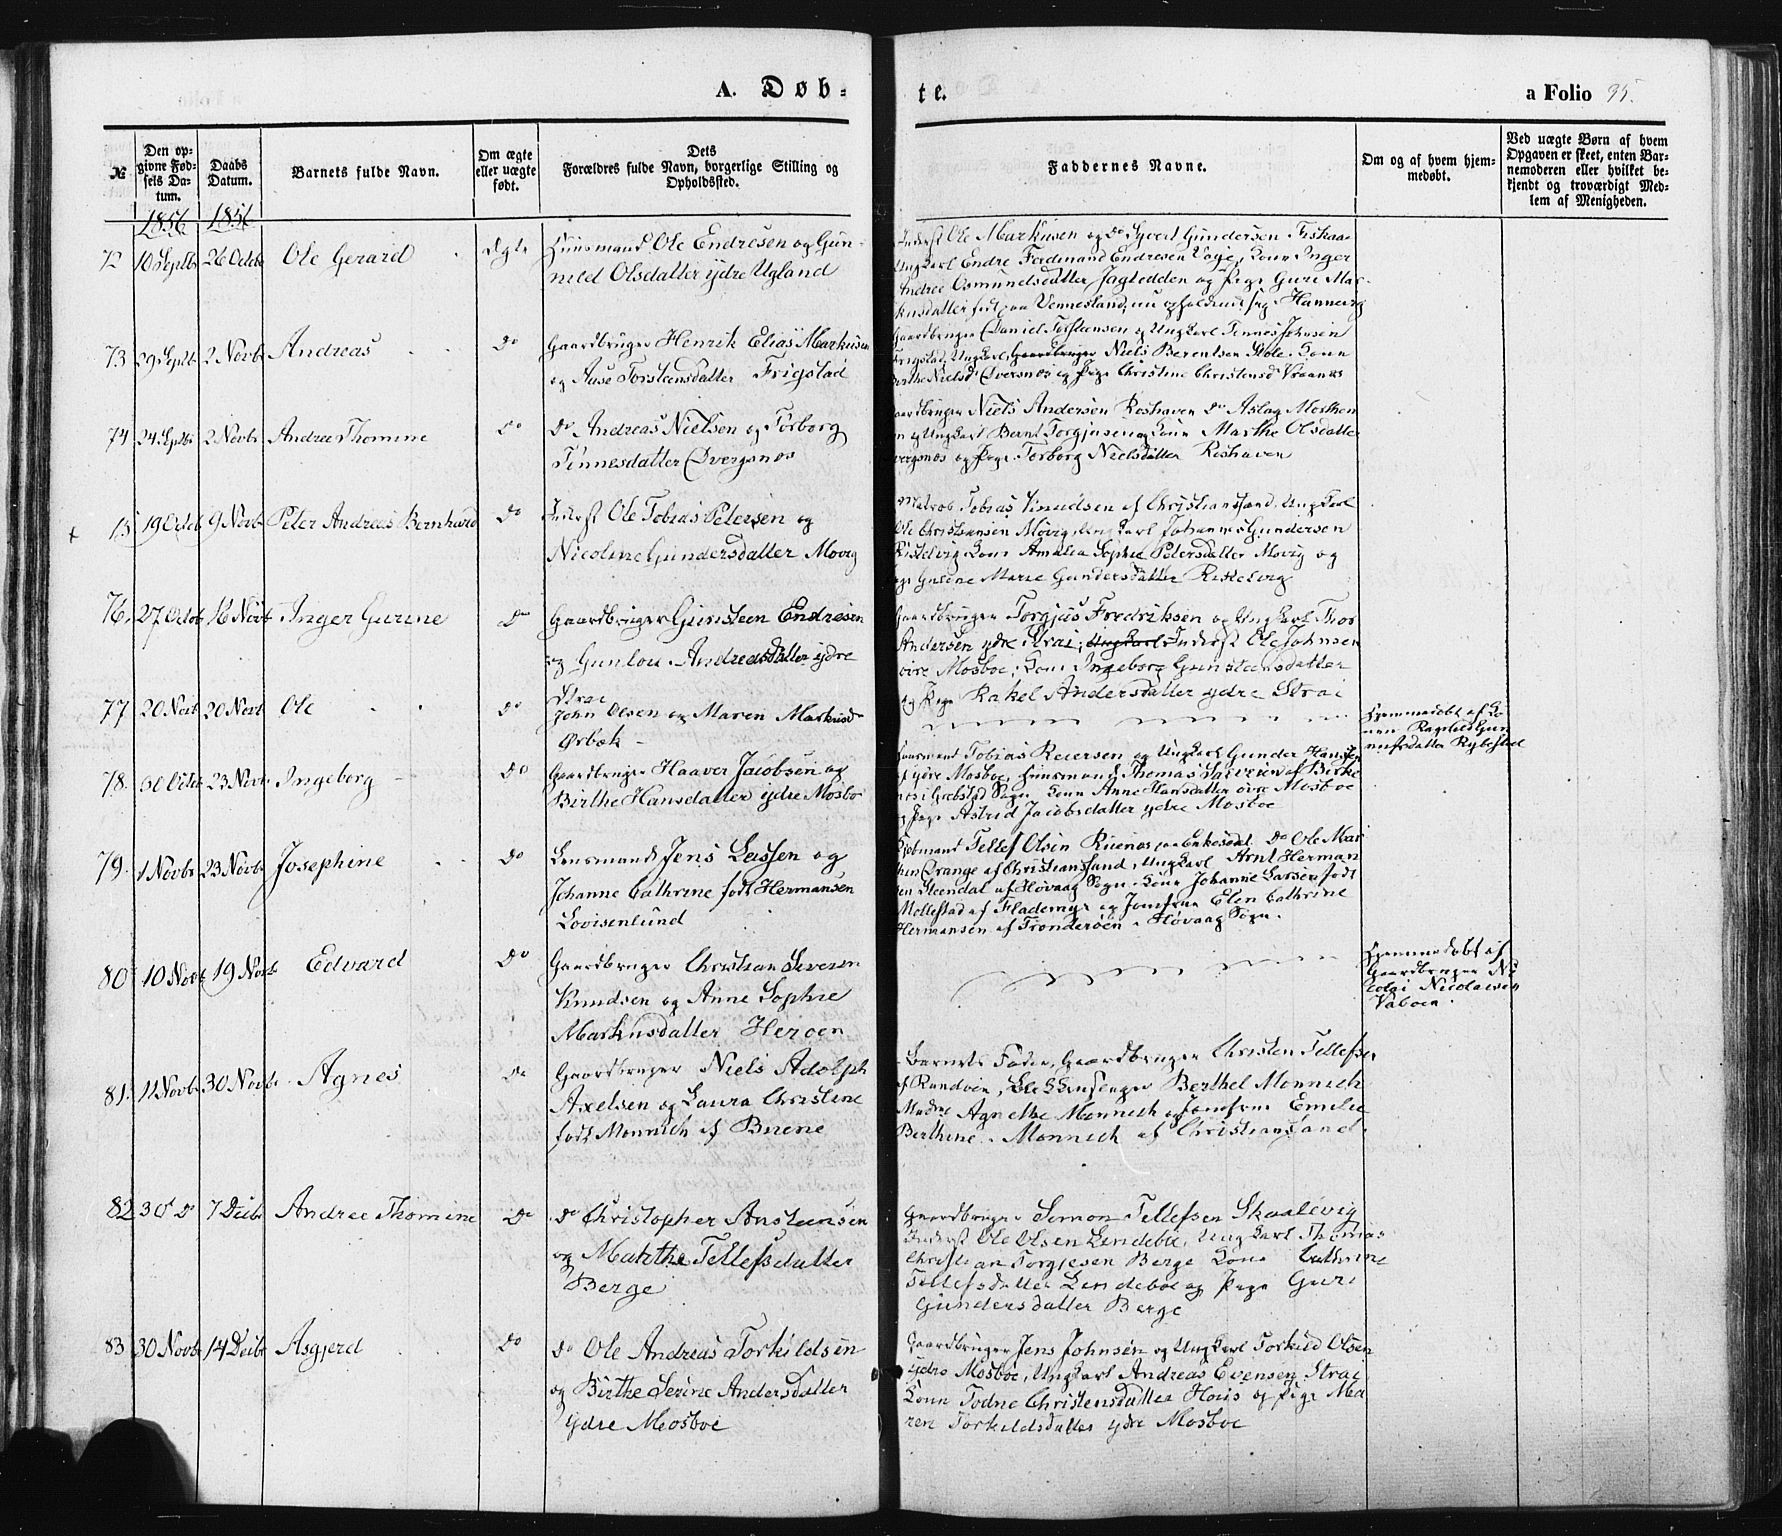 A. Døb-
te.
a Folio 95.
№
Den op-
givne Fød-
sels Da-
tum.
Daabs
Datum.
Barnets fulde Navn.
Om ægte
eller uægte
født.
Dets
Forældres fulde Navn, borgerlige Stilling og
Opholdssted.
Faddernes Navne.
Om og af hvem hjem-
medøbt.
Ved uægte Børn af hvem
Opgaven er skeet, enten Bar-
nemoderen eller hvilket be-
kjendt og troværdigt Med-
lem af Menigheden.
1856 1856
72 10 Septbr 26 Octobr Ole Gerard Ægte
Huusmand Ole Endresen og Gun-
nild Olsdatter ydre Ugland
Inderst Ole Markusen og Do Sjvert Gundersen Fiskaa
Ungkarl Endre Ferdinand Endresen Vage, Kone Inger
Andrea Osmundsdatter Jagtedden og Pige Guri Mar-
kusdatter født paa Vennesland, nu opholdende sig i Hannevig
73 29 Septbr 2 Novbr Andreas Do
Gaardbruger Henrik Elias Markusen
og Aase Torsteensdatter Frigstad
Gaardbruger Daniel Torsteensen og Ungkarl Tønnes Johnsen
Frigstad, Ungkarl Gaardbruger Niels Berentsen Stole. Kone
Berthe Nielsd. Øversnos og Pige Christine Christensd. Vraanes
74 24 Septbr 2 Novbr Andrea Thomine Do
Do Andreas Nielsen og Torborg
Tønnesdatter Øvergsnos
Gaardbruger Niels Andersen Røshaven Do Aslag
og Ungkarl Bernt Torgjusen og Kone Marthe Olsdatter
Øvergsnos og Pige Torborg Nielsdatter Røshaven
75 19 Octob 9 Novbr Peter Andreas Bernhard Do
Inderst Ole Tobias Petersen og
Nicoline Gundersdatter Møvig
Matros Tobias Knudsen af Christiansand, Ungkarl
Ole Christiansen Møvig, Ungkarl Johannes Gundersen
Kistelvig Kone Amalia Sophie Petersdatter Møvig og
Pige Gusine Marie Gundersdatter
76. 27 Octob 16 Novb Inger Gurine Do
Gaardbruger Gunsteen Endresen
og Gunlou Andreasdatter ydre
Strai
Gaardbruger Torgjus Fredriksen og Ungkarl Thor
Andersen ydre Strai, Ungkarl Inderst Ole Johnsen
øvre Mosboe; Kone Ingeborg Gunsteensdatter
og Pige Rakel Andersdatter ydre Strai
77 20 Novb 20 Novb Ole Do
John Olsen og Maren Markusd
Ørbæk
Hjemmedøbt af Ko-
nen Ragnhild Gun-
Rybestad
78. 30 Octob 23 Novb Ingeborg Do
Gaardbruger Haaver Jacobsen og
Birthe Hansdatter ydre Mosbo
Huusmand Tobias Reiersen og Ungkarl Gunder Hansen
af ydre Mosboe, Huusmand Thomas Syvertsen af Birke
nes i Grebstad Sogn Kone Anne Hansdatter øvre Mosboe
og Pige Astrid Jacobsdatter ydre Mosboe
79. 1 Novbr 23 Novbr Josephine Do
Lensmand Jens Lassen og
Johanne Cathrine født Hermansen
Lovisenlund
Kjøbmand Tellef Olsen Do Ole Mar
af Christianssand, Ungkarl Arnt Herman
sen Steendal af Høvaag Sogn. Kone Johanne Larsen født
Møllestad af og Jomfrue Elen Cathrine
Hermansen af Trønderøen i Høvaag Sogn.
80 10 Novb 19 Novb Edvard Do
Gaardbruger Christian Severin
Knudsen og Anne Sophie
Markusdatter Herøen
Hjemmedøbt af
Gaardbruger Ni-
colai Nicolaisen
Vaboen.
81. 11 Novbr 30 Novbr Agnes Do
Gaardbruger Niels Adolph
Axelsen og Laura Christine
født Monnich af Buene
Barnets Fader, Gaardbruger Christen Tellefsen
af Randøen, Berthel Monnich
Madme Agnethe Monnich og Jomfrue Emilie
Berthine Monnich af Christiansand.
82 30 Do 7 Decbr Andrea Thomine Do
Do Christopher Anstensen
og Mathhe Tellefsdatter
Berge
Gaardbruger Simon Tellefsen Skaalevig
Inderst Ole Olsen Lindeboe, Ungkarl Thomas
Christian Torgjesen Berge Kone Cathrine
Tellefsdatter Lindeboe og Pige Guri
Gundersdatter Berge
83 30 Novbr 14 Decbr Asgjerd Do
Do Ole Andreas Torkildsen
og Birthe Serine Andersdatter
ydre Mosboe
Gaardbruger Jens Johnsen og Ungkarl Torkild Olsen
ydre Mosboe, Ungkarl Andreas Evensen Strai
Konen Todne Christensdatter Hous og Pige Ma
ren Torkildsdatter ydre Mosboe